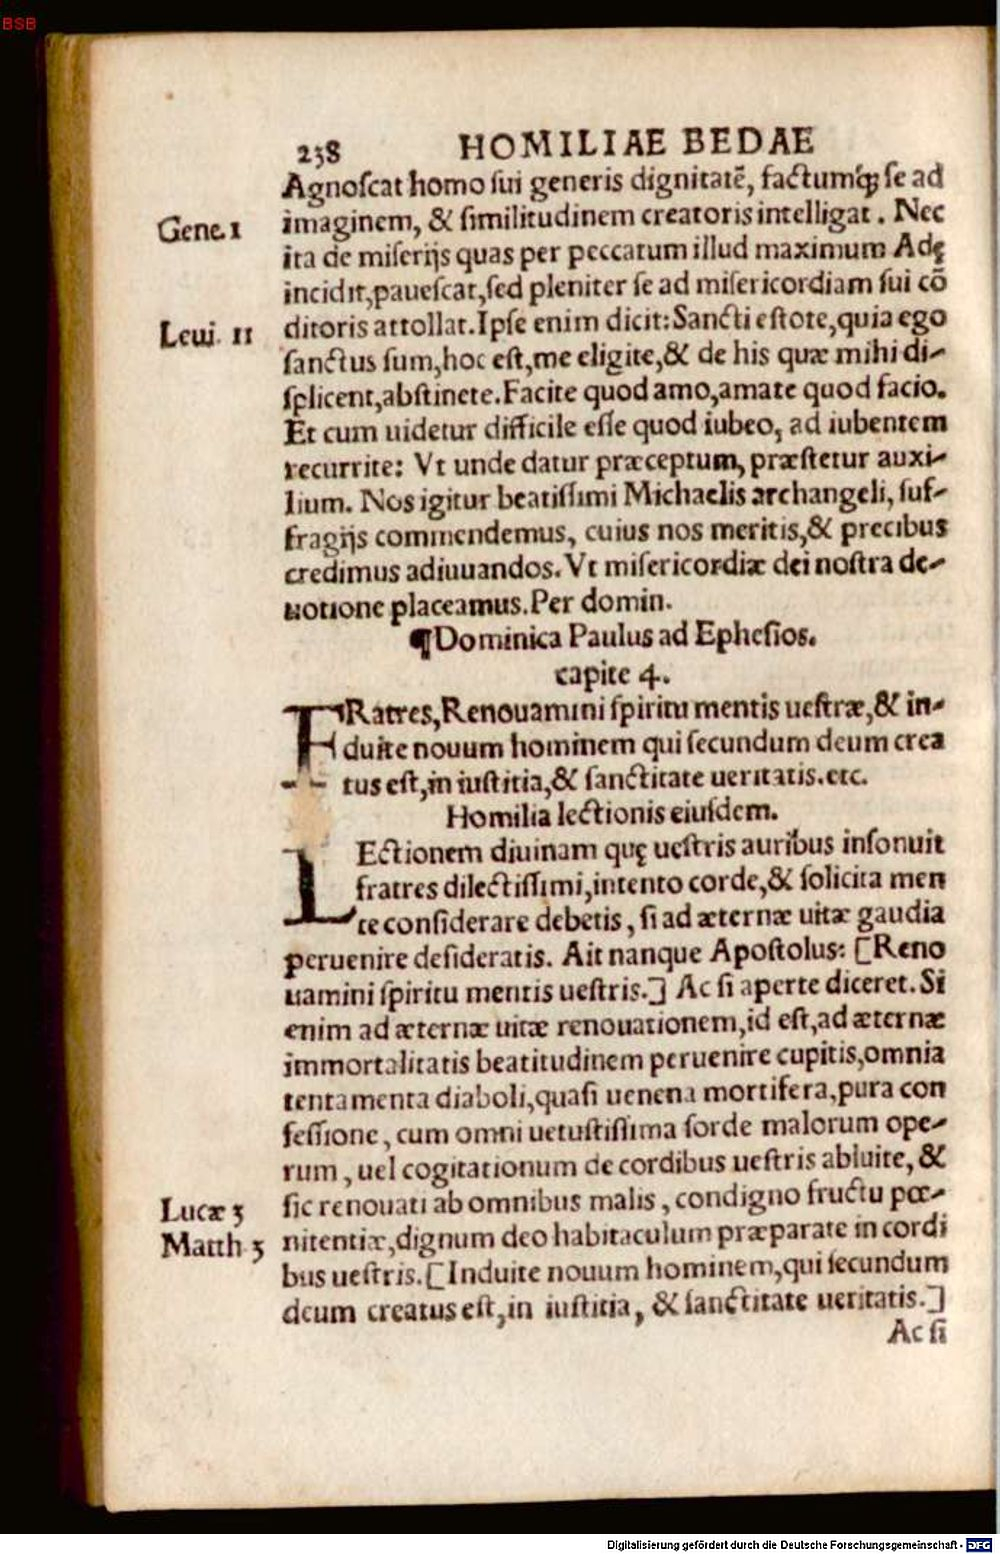 BSB
238 HOMILIAE BEDAE
Agnoſcat homo ſui generis dignitatẽ, factumq́; ſe ad
Gene. 1 imaginem, & ſimilitudinem creatoris intelligat. Nec
ita de miſerijs quas per peccatum illud maximum Adę
incidit, paueſcat, ſed pleniter ſe ad miſericordiam ſui cõ
Leui. 11 ditoris attollat. Ipſe enim dicit: Sancti eſtote, quia ego
ſanctus ſum, hoc eſt, me eligite, & de his quæ mihi di-
ſplicent, abſtinete. Facite quod amo, amate quod facio.
Et cum uidetur difficile eſſe quod iubeo, ad iubentem
recurrite: Vt unde datur præceptum, præſtetur auxi-
lium. Nos igitur beatiſſimi Michaelis archangeli, ſuf-
fragijs commendemus, cuius nos meritis, & precibus
credimus adiuuandos. Vt miſericordiæ dei noſtra de-
uotione placeamus. Per domin.
¶Dominica Paulus ad Epheſios.
capite 4.
FRatres, Renouamini ſpiritu mentis ueſtræ, & in-
duite nouum hominem qui ſecundum deum crea
tus eſt, in iuſtitia, & ſanctitate ueritatis. etc.
Homilia lectionis eiuſdem.
LEctionem diuinam quę ueſtris auribus inſonuit
fratres dilectiſſimi, intento corde, & ſolicita men
te conſiderare debetis, ſi ad æternæ uitæ gaudia
peruenire deſideratis. Ait nanque Apoſtolus: [Reno
uamini ſpiritu mentis ueſtris.] Ac ſi aperte diceret. Si
enim ad æternæ uitæ renouationem, id eſt, ad æternæ
immortalitatis beatitudinem peruenire cupitis, omnia
tentamenta diaboli, quaſi uenena mortifera, pura con
feſſione, cum omni uetuſtiſſima ſorde malorum ope-
rum, uel cogitationum de cordibus ueſtris abluite, &
Lucæ 3 ſic renouati ab omnibus malis, condigno fructu pœ-
Matth 3 nitentiæ, dignum deo habitaculum præparate in cordi
bus ueſtris. [Induite nouum hominem, qui ſecundum
deum creatus eſt, in iuſtitia, & ſanctitate ueritatis.]
Ac ſi
Digitalisierung gefördert durch die Deutsche Forschungsgemeinschaft - DFG